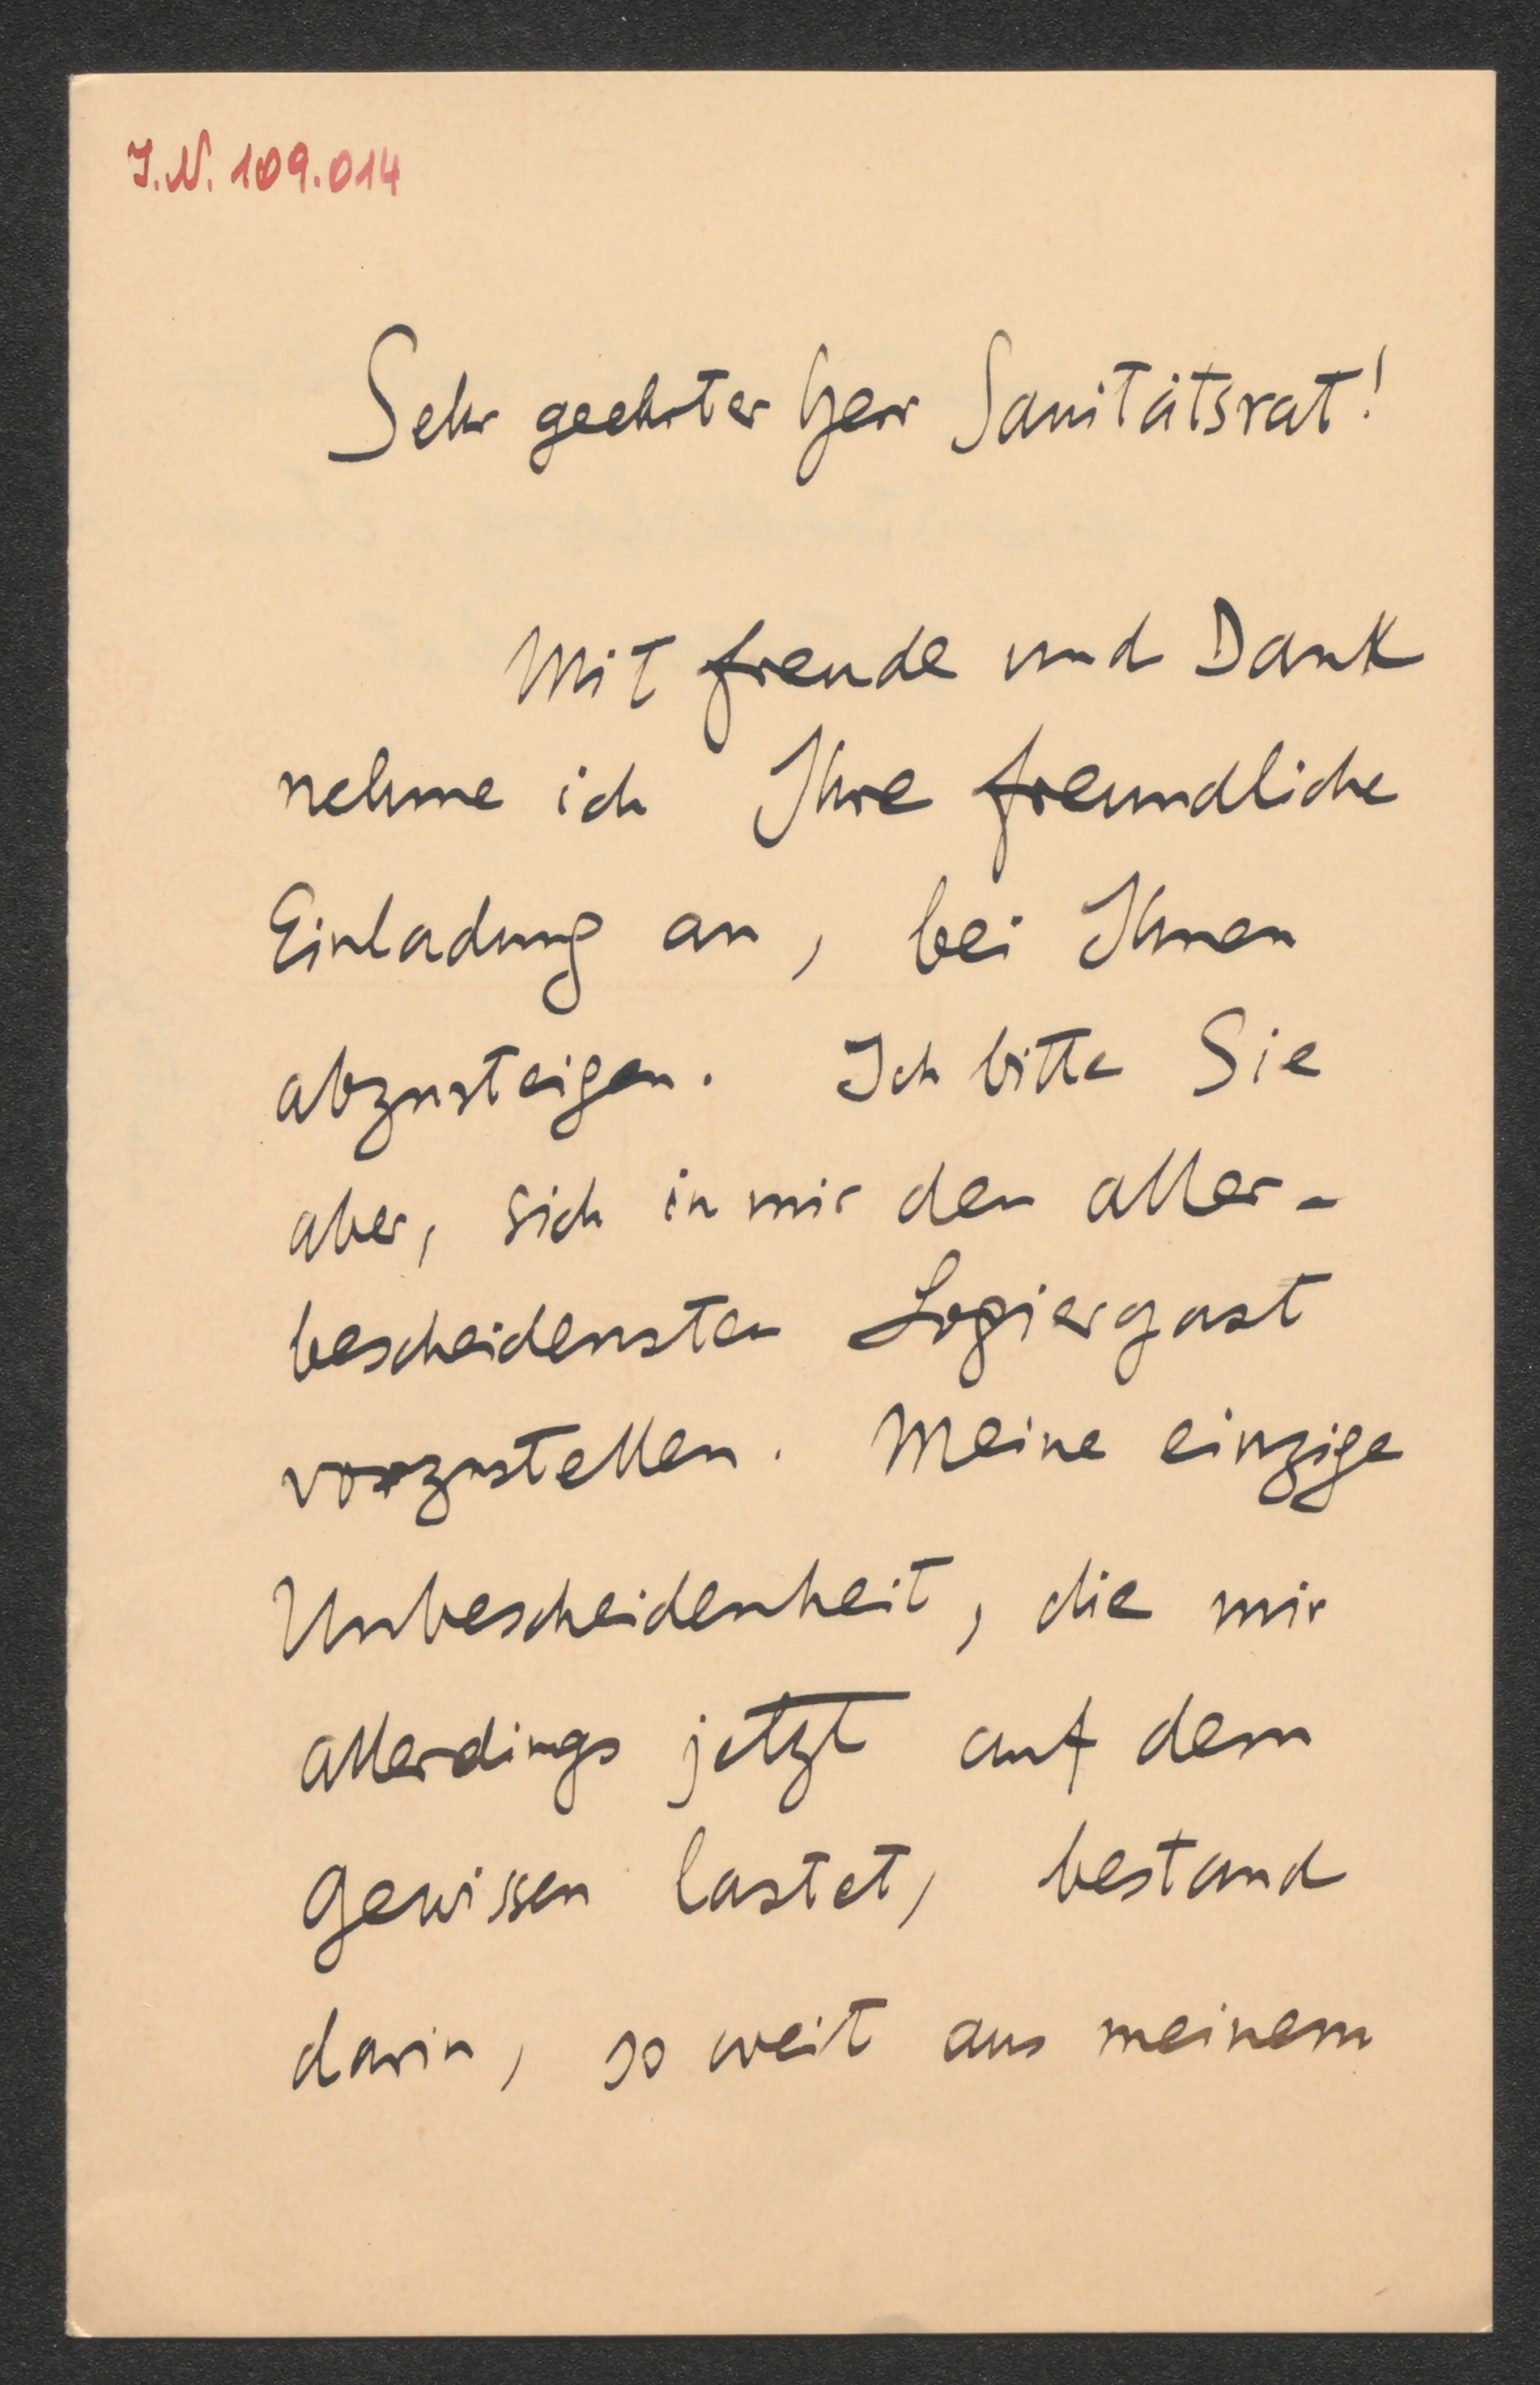 I.N. 109.014
Sehr geehrter Herr Sanitätsrat!
Mit Freude und Dank
nehme ich Ihre freundliche
Einladung an, bei Ihnen
abzusteigen. Ich bitte Sie
aber, sich in mir den aller-
bescheidensten Logiergast
vorzustellen. Meine einzige
Unbescheidenheit, die mir
allerdings jetzt auf dem
Gewissen lastet, bestand
darin, so weit aus meinem